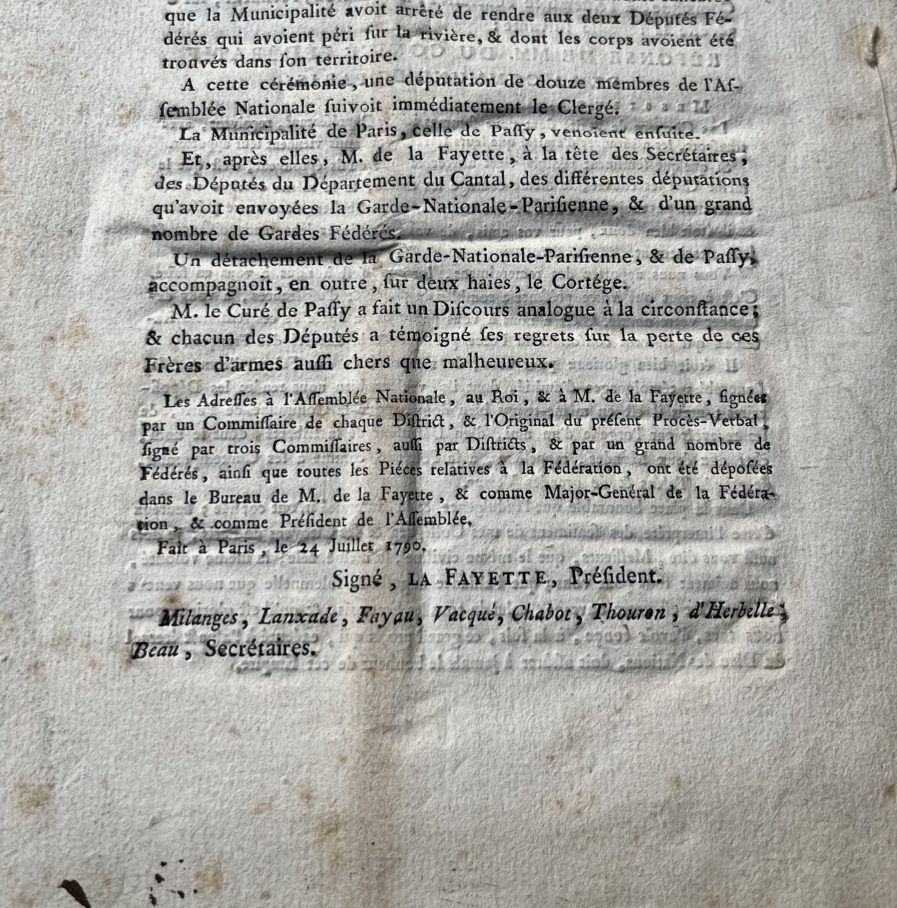 que la Municipalité avoit arrêté de rendre aux deux Députés Fé-
dérés qui avoient péri ſur la rivière, & dont les corps avoient été
trouvés dans ſon territoire.
A cette cérémonie, une députation de douze membres de l'Aſ-
ſemblée Nationale ſuivoit immédiatement le Clergé.
La Municipalité de Paris, celle de Paſſy, venoient enſuite.
Et, après elles, M. de la Fayette, à la tête des Secrétaires,
des Députés du Département du Cantal, des différentes députations
qu'avoit envoyées la Garde-Nationale-Pariſienne, & d'un grand
nombre de Gardes Fédérés.
Un détachement de la Garde-Nationale-Pariſienne, & de Paſſy,
accompagnoit, en outre, ſur deux haies, le Cortége.
M. le Curé de Paſſy a fait un Diſcours analogue à la circonſtance;
& chacun des Députés a témoigné ſes regrets ſur la perte de ces
Frères d'armes auſſi chers que malheureux.
Les Adreſſes à l'Aſſemblée Nationale, au Roi, & à M. de la Fayette, ſignées
par un Commiſſaire de chaque Diſtrict, & l'Original du préſent Procès-Verbal,
ſigné par trois Commiſſaires, auſſi par Diſtricts, & par un grand nombre de
Fédérés, ainſi que toutes les Piéces relatives à la Fédération, ont été dépoſées
dans le Bureau de M. de la Fayette, & comme Major-Général de la Fédéra-
tion, & comme Préſident de l'Aſſemblée.
Fait à Paris, le 24 Juillet 1790.
Signé, LA FAYETTE, Préſident.
Milanges, Lanxade, Fayau, Vacqué, Chabot, Thouron, d'Herbelle,
Beau, Secrétaires.